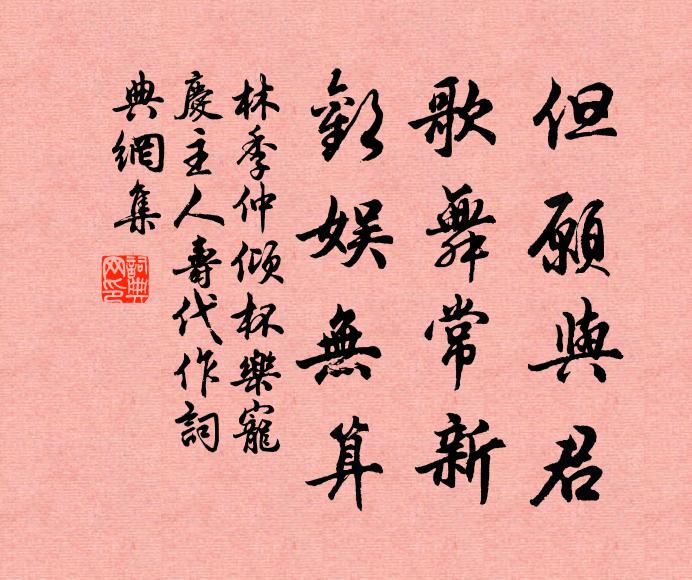 但願與君
歌舞常新
歡娛無算
林季仲傾杯樂寵
慶主人壽代作詞
典網集
詞典網印